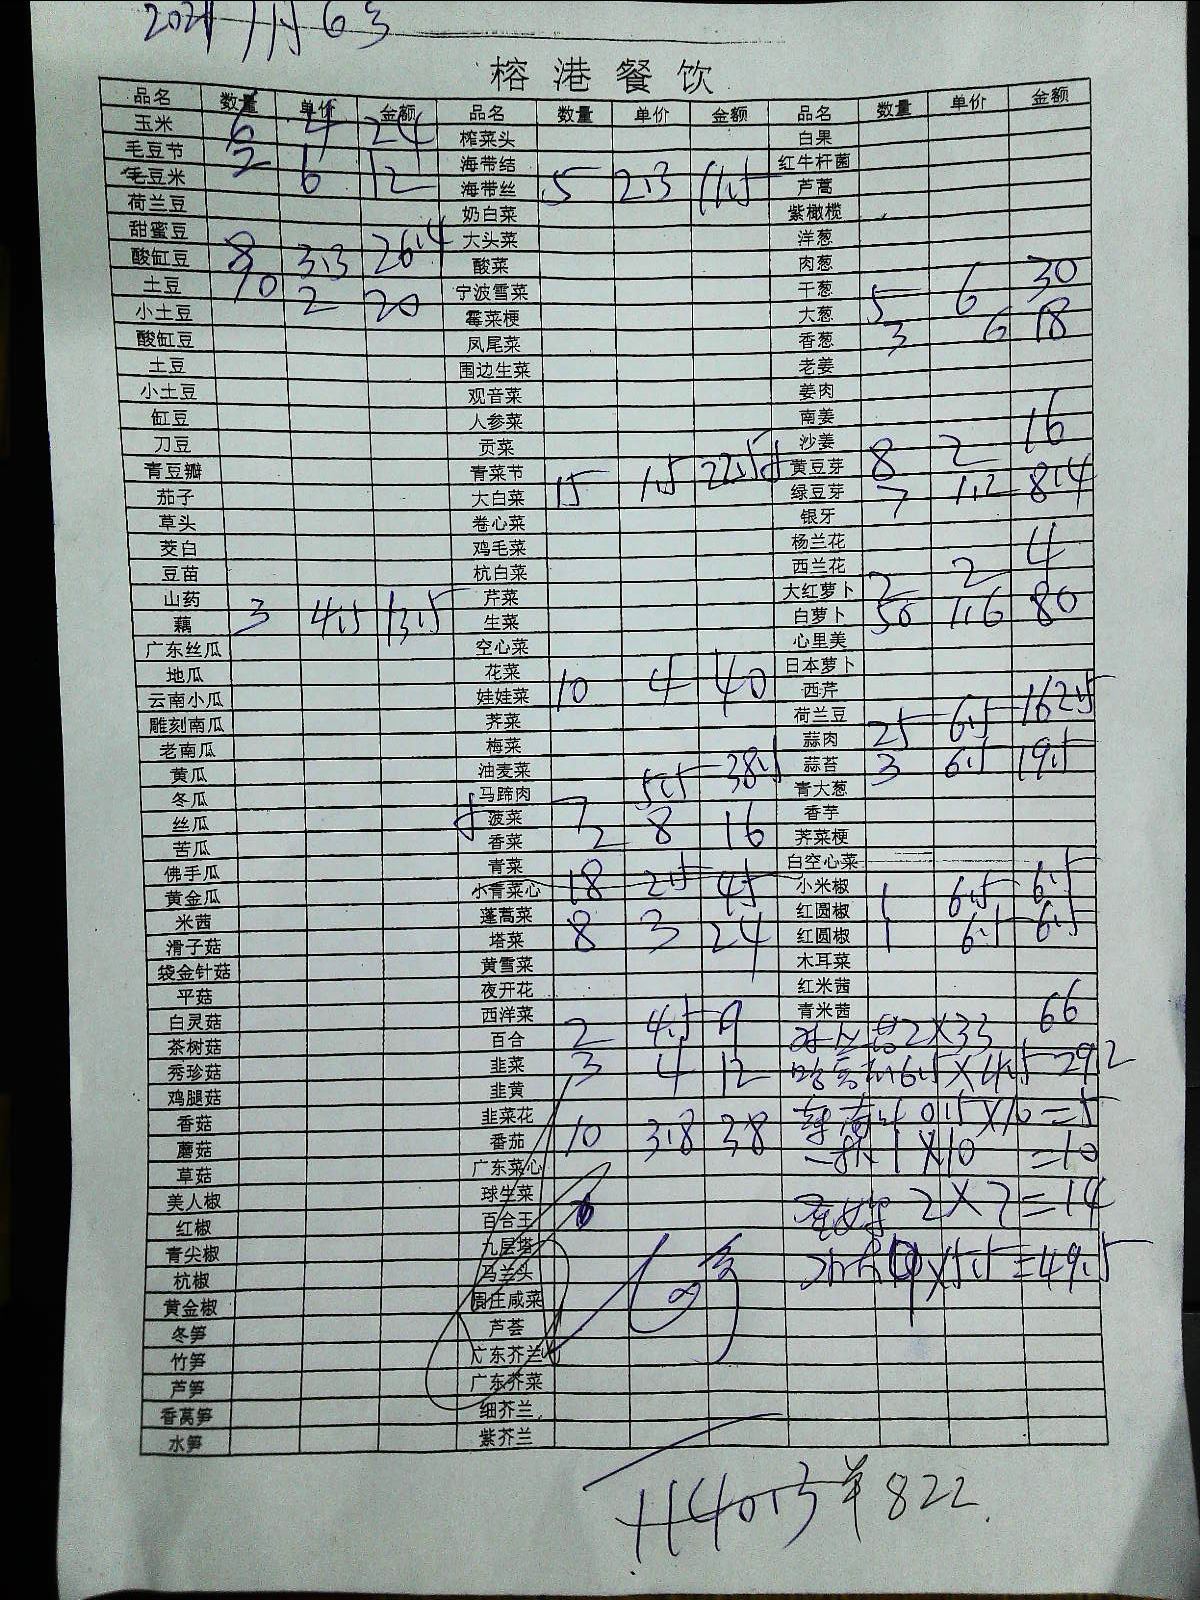 2021 1月6号
榕港餐饮
品名 数量 单价 金额 品名 数量 单价 金额 品名 数量 单价 金额
玉米 6 4 24 榨菜头 白果
毛豆节 2 6 12 海带结 红牛杆菌
毛豆米 海带丝 5 2.3 11.5 芦蒿
荷兰豆 奶白菜 紫橄榄
甜蜜豆 大头菜 洋葱
酸缸豆 8 3.3 26.4 酸菜 肉葱
土豆 10 2 20 宁波雪菜 干葱 5 6 30
小土豆 霉菜梗 大葱
酸缸豆 凤尾菜 香葱 3 6 18
土豆 围边生菜 老姜
小土豆 观音菜 姜肉
缸豆 人参菜 南姜
刀豆 贡菜 沙姜
青豆瓣 青菜节 黄豆芽 8 2 16
茄子 大白菜 15 1.5 22.5 绿豆芽 7 1.2 8.4
草头 卷心菜 银牙
茭白 鸡毛菜 杨兰花
豆苗 杭白菜 西兰花
山药 芹菜 大红萝卜 2 2 4
藕 3 4.5 13.5 生菜 白萝卜 50 1.6 80
广东丝瓜 空心菜 心里美
地瓜 花菜 日本萝卜
云南小瓜 娃娃菜 10 4 40 西芹
雕刻南瓜 荠菜 荷兰豆
老南瓜 梅菜 蒜肉 25 6.5 162.5
黄瓜 油麦菜 蒜苔 3 6.5 19.5
冬瓜 马蹄肉 青大葱
丝瓜 菠菜 7 5.5 38.5 香芋
苦瓜 香菜 2 8 16 荠菜梗
佛手瓜 青菜 白空心菜
黄金瓜 小青菜心 18 2.5 45 小米椒 1 6.5 6.5
米茜 蓬蒿菜 红圆椒
滑子菇 塔菜 8 3 24 红圆椒 1 6.5 6.5
袋金针菇 黄雪菜 木耳菜
平菇 夜开花 红米茜
白灵菇 西洋菜 青米茜
茶树菇 百合 2 4.5 9 2X33 66
秀珍菇 韭菜 3 4 12 6.5X4.5 29.2
鸡腿菇 韭黄
香菇 韭菜花 0.5X10=5
蘑菇 番茄 10 3.8 38 1X10=10
草菇 广东菜心
美人椒 球生菜 2X7=14
红椒 百合王
青尖椒 九层塔 9X5.5=49.5
杭椒 马兰头
黄金椒 周庄咸菜
冬笋 芦荟
竹笋 广东芥兰
芦笋 广东芥菜
香莴笋 细芥兰
水笋 紫芥兰
822